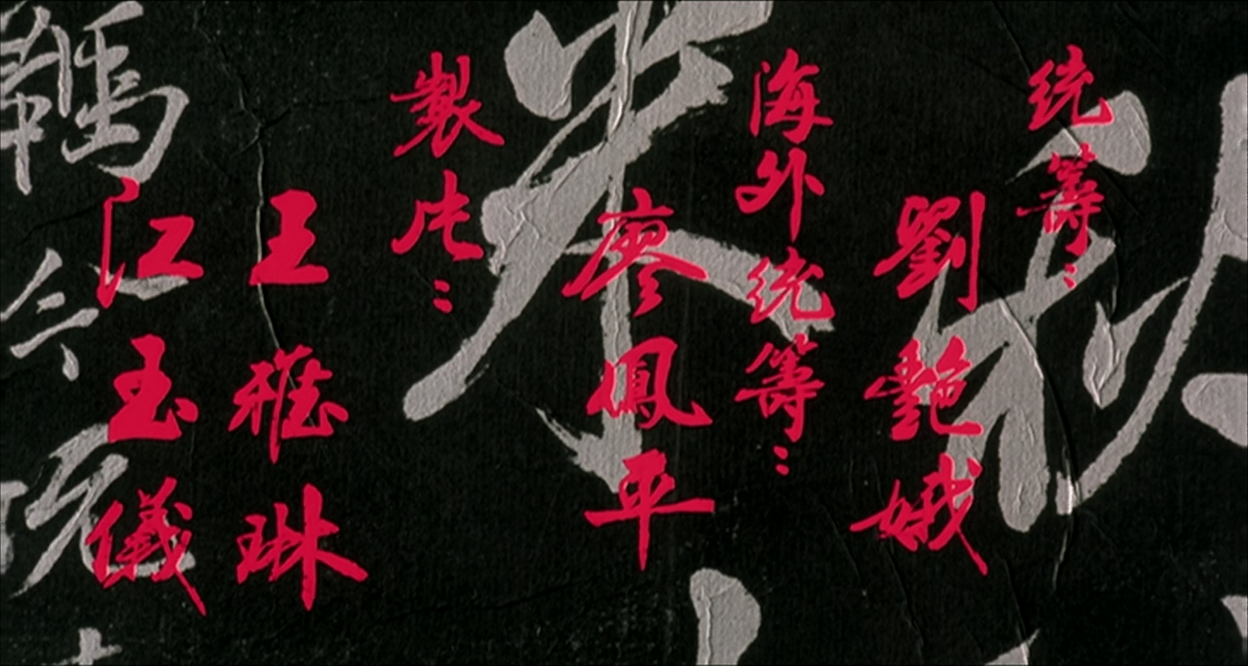 統籌:
劉艷娥
海外統筹:
廖鳳平
製片:
王雅琳
江玉儀